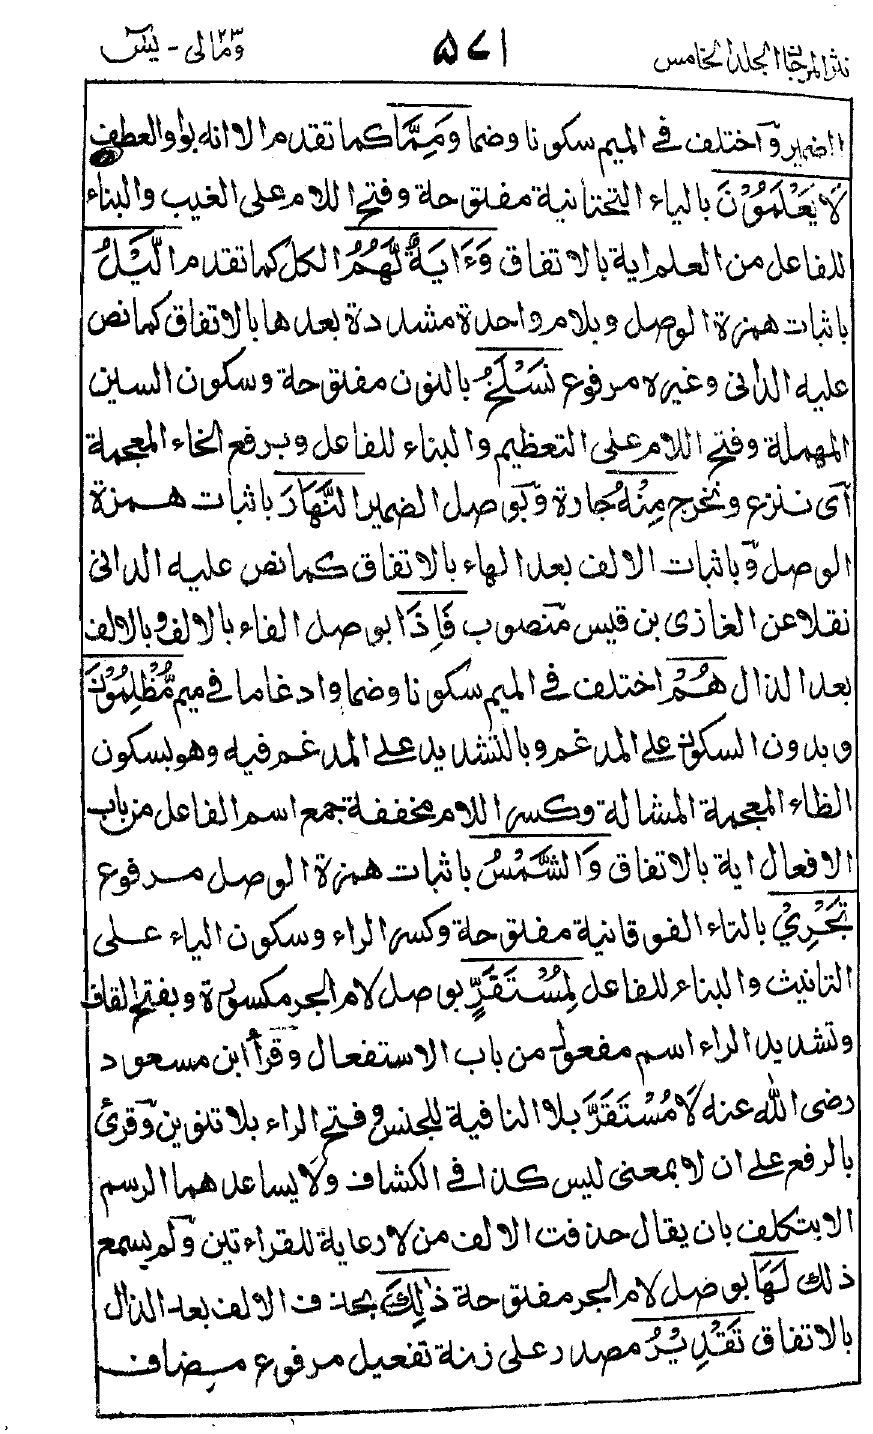 نثر المرجان المجلد الخامس
٥٧١
ومالی ۲۳ - يٰسٓ
الضمير واختلف فی الميم سكونا وضما وَمِمَّا كما تقدم الا انه بواو العطف
لَا يَعْلَمُوْنَ بالياء التحتانية مفتوحة وفتح اللام على الغيب والبناء
للفاعل من العلم اية بالاتفاق وَءَايَةٌ لَّهُمُ الكل كما تقدم الَّيْلُ
باثبات همزة الوصل وبلام واحدة مشددة بعدها بالاتفاق كما نص
عليه الدانی وغيره مرفوع نَسْلَخُ بالنون مفتوحة وسكون السين
المهملة وفتح اللام علی التعظيم والبناء للفاعل وبرفع الخاء المعجمة
ای ننزع ونخرج مِنْهُ جارة وبوصل الضمير النَّهَارَ باثبات همزة
الوصل وباثبات الالف بعد الهاء بالاتفاق كما نص عليه الدانی
نقلا عن الغازی بن قيس منصوب فَاِذَا بوصل الفاء بالالف وبالالف
بعد الذال هُمْ اختلف فی الميم سكونا وضما وادغاما فی ميم مُّظْلِمُوْنَ
وبدون السكون علی المدغم وبالتشديد علی المدغم فيه وهو بسكون
الظاء المعجمة المشالة وكسر اللام مخففة جمع اسم الفاعل من باب
الافعال اية بالاتفاق وَالشَّمْسُ باثبات همزة الوصل مرفوع
تَجْرِيْ بالتاء الفوقانية مفتوحة وكسر الراء وسكون الياء علی
التانيث والبناء للفاعل لِمُسْتَقَرٍّ بوصل لام الجر مكسورة وبفتح القاف
وتشديد الراء اسم مفعول من باب الاستفعال وقرأ ابن مسعود
رضی الله عنه لَا مُسْتَقَرَّ بلا النافية للجنس وفتح الراء بلا تنوين وقرئ
بالرفع علی ان لا بمعنی ليس كذا فی الكشاف ولا يساعدهما الرسم
الا بتكلف بان يقال حذفت الالف من لا رعاية للقراءتين ولم يسمع
ذلك لَهَا بوصل لام الجر مفتوحة ذٰلِكَ بحذف الالف بعد الذال
بالاتفاق تَقْدِيْرُ مصدر علی زنة تفعيل مرفوع مضاف